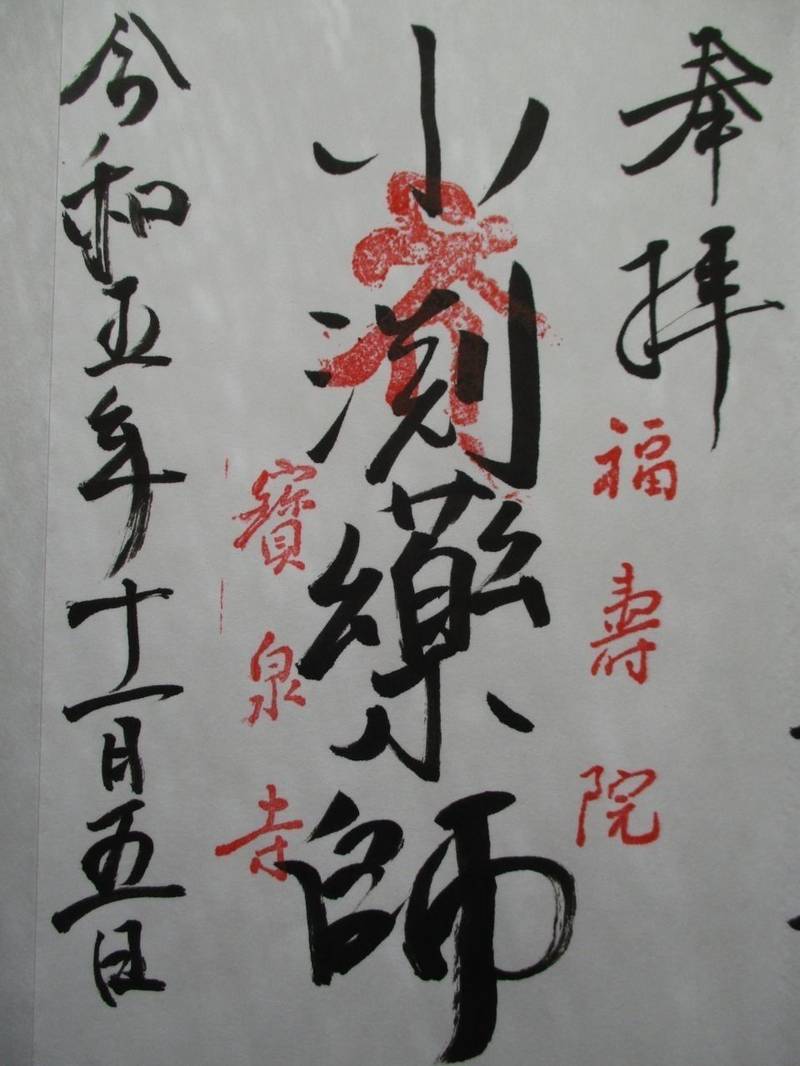 奉拝
福壽院
小渕藥師
寶泉寺
令和五年十一月五日